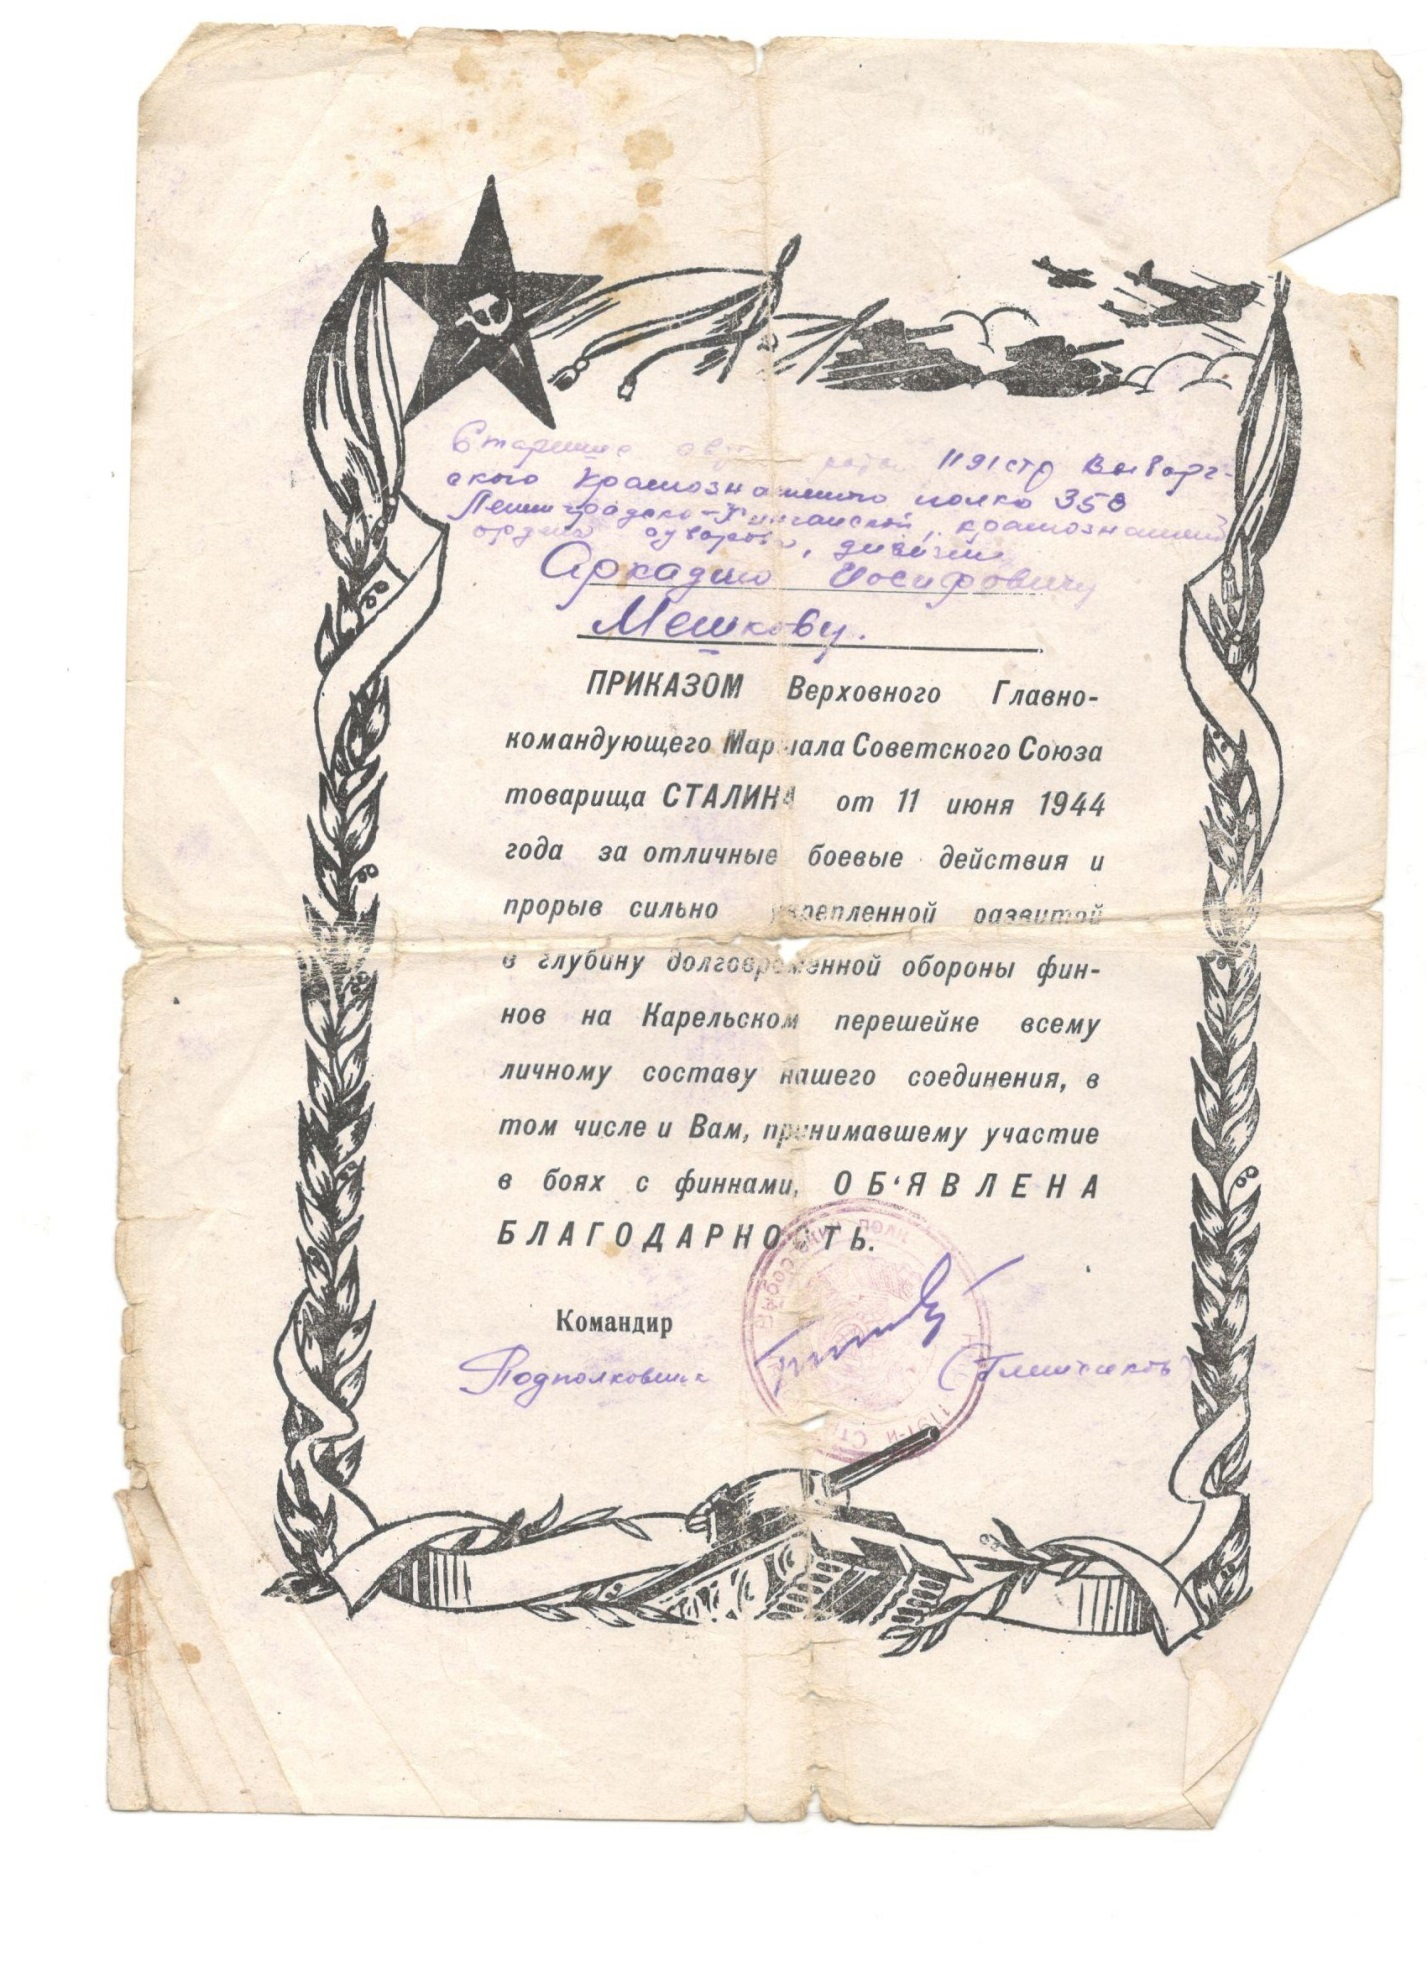 Старшине роты 1191 стр Выборг-
ского Краснознаменного полка 358
Ленинградско-Хинганской, краснознаменной
ордена Суворова, дивизии
Аркадию Иосифовичу
Мешкову.
ПРИКАЗОМ Верховного Главно-
командующего Маршала Советского Союза
товарища СТАЛИНА от 11 июня 1944
года за отличные боевые действия и
прорыв сильно укрепленной развитой
в глубину долговременной обороны фин-
нов на Карельском перешейке всему
личному составу нашего соединения, в
том числе и Вам, принимавшему участие
в боях с финнами, ОБ'ЯВЛЕНА
БЛАГОДАРНОСТЬ.
Командир
Подполковник
1191-й СТРЕЛКОВЫЙ ПОЛК